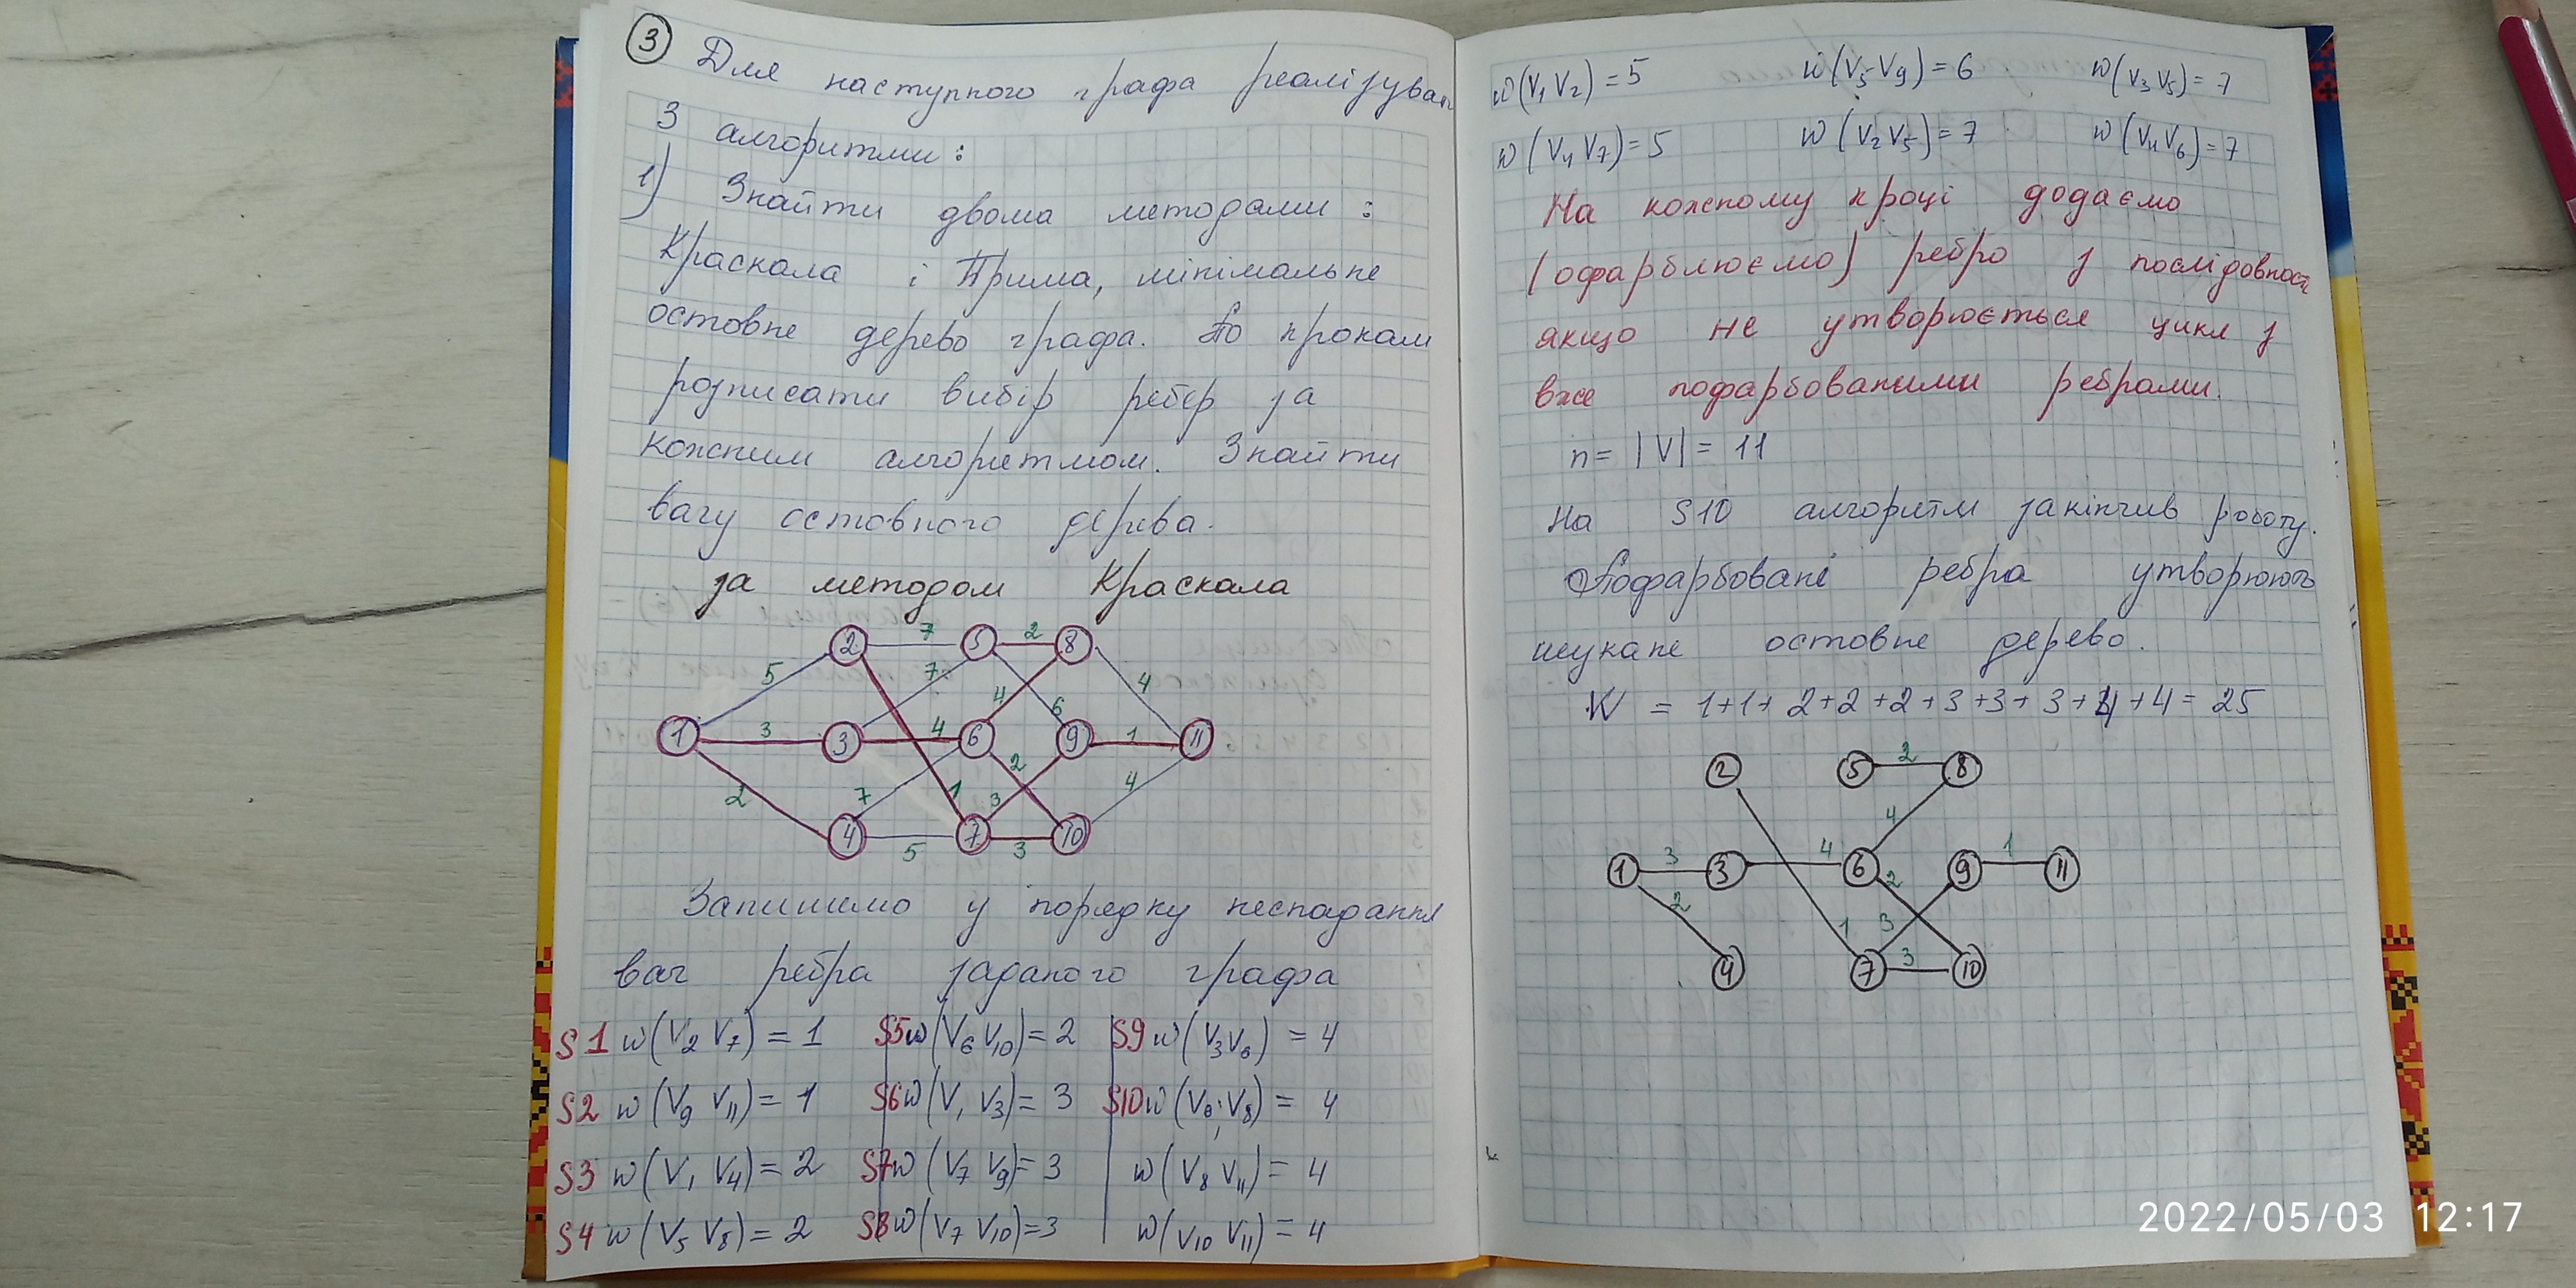 3 Для наступного графа реалізувати
3 алгоритми:
1) Знайти двома методами:
Краскала і Прима, мінімальне
остовне дерево графа. По крокам
розписати вибір ребер за
кожним алгоритмом. Знайти
вагу остовного дерева.
за методом Краскала
2 7 5 2 8
5 7 4 6 4
1 3 3 4 6 9 1 11
2 7 1 3 2 4
4 5 7 3 10
Запишемо у порядку неспадання
ваг ребра заданого графа
S1 w(V2 V7) = 1 S5 w(V6 V10) = 2 S9 w(V3 V6) = 4
S2 w(V9 V11) = 1 S6 w(V1 V3) = 3 S10 w(V6; V8) = 4
S3 w(V1 V4) = 2 S7 w(V7 V9) = 3 w(V8 V11) = 4
S4 w(V5 V8) = 2 S8 w(V7 V10) = 3 w(V10 V11) = 4
w(V1 V2) = 5 w(V5 V9) = 6 w(V3 V5) = 7
w(V4 V7) = 5 w(V2 V5) = 7 w(V4 V6) = 7
На кожному кроці додаємо
(офарблюємо) ребро з послідовності
якщо не утворюється цикл з
вже пофарбованими ребрами.
n = |V| = 11
На S10 алгоритм закінчив роботу.
Пофарбовані ребра утворюють
шукане остовне дерево.
W = 1+1+2+2+2+3+3+3+4+4 = 25
2 5 2 8
4
1 3 3 4 6 9 1 11
2 2
1 3
4 7 3 10
2022/05/03 12:17